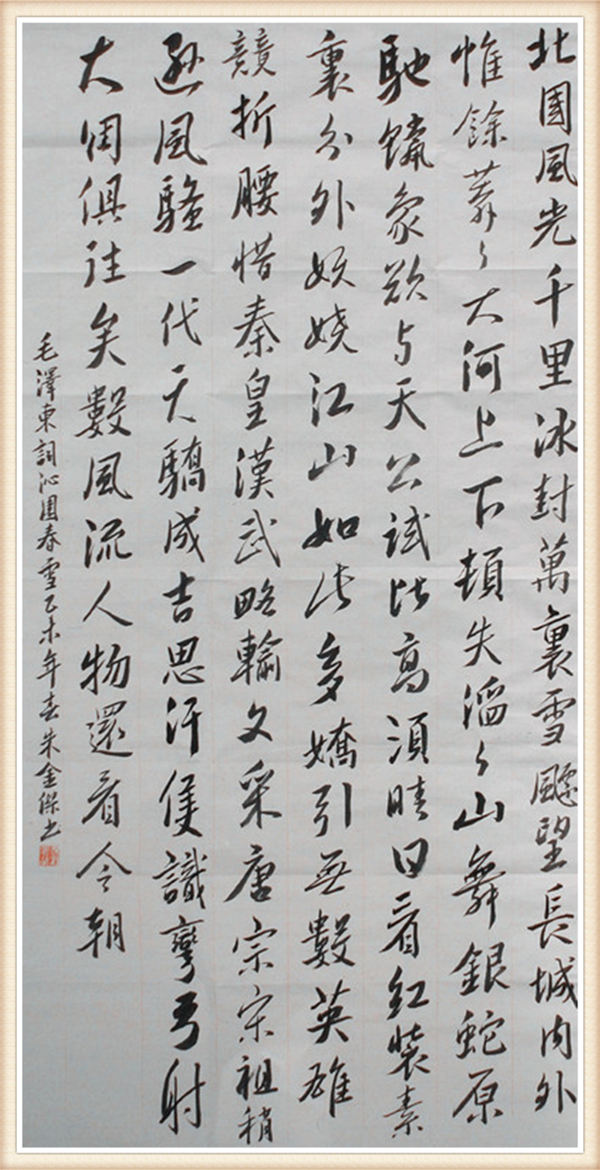 北國風光千里冰封萬裏雪飄望長城內外
惟餘莽々大河上下頓失滔々山舞銀蛇原
馳蠟象欲与天公試比高須晴日看紅裝素
裹分外妖嬈江山如此多嬌引無數英雄
競折腰惜秦皇漢武略輸文采唐宗宋祖稍
遜風騷一代天驕成吉思汗僅識彎弓射
大雕俱往矣數風流人物還看今朝
毛澤東詞沁園春雪乙未年春朱金傑书